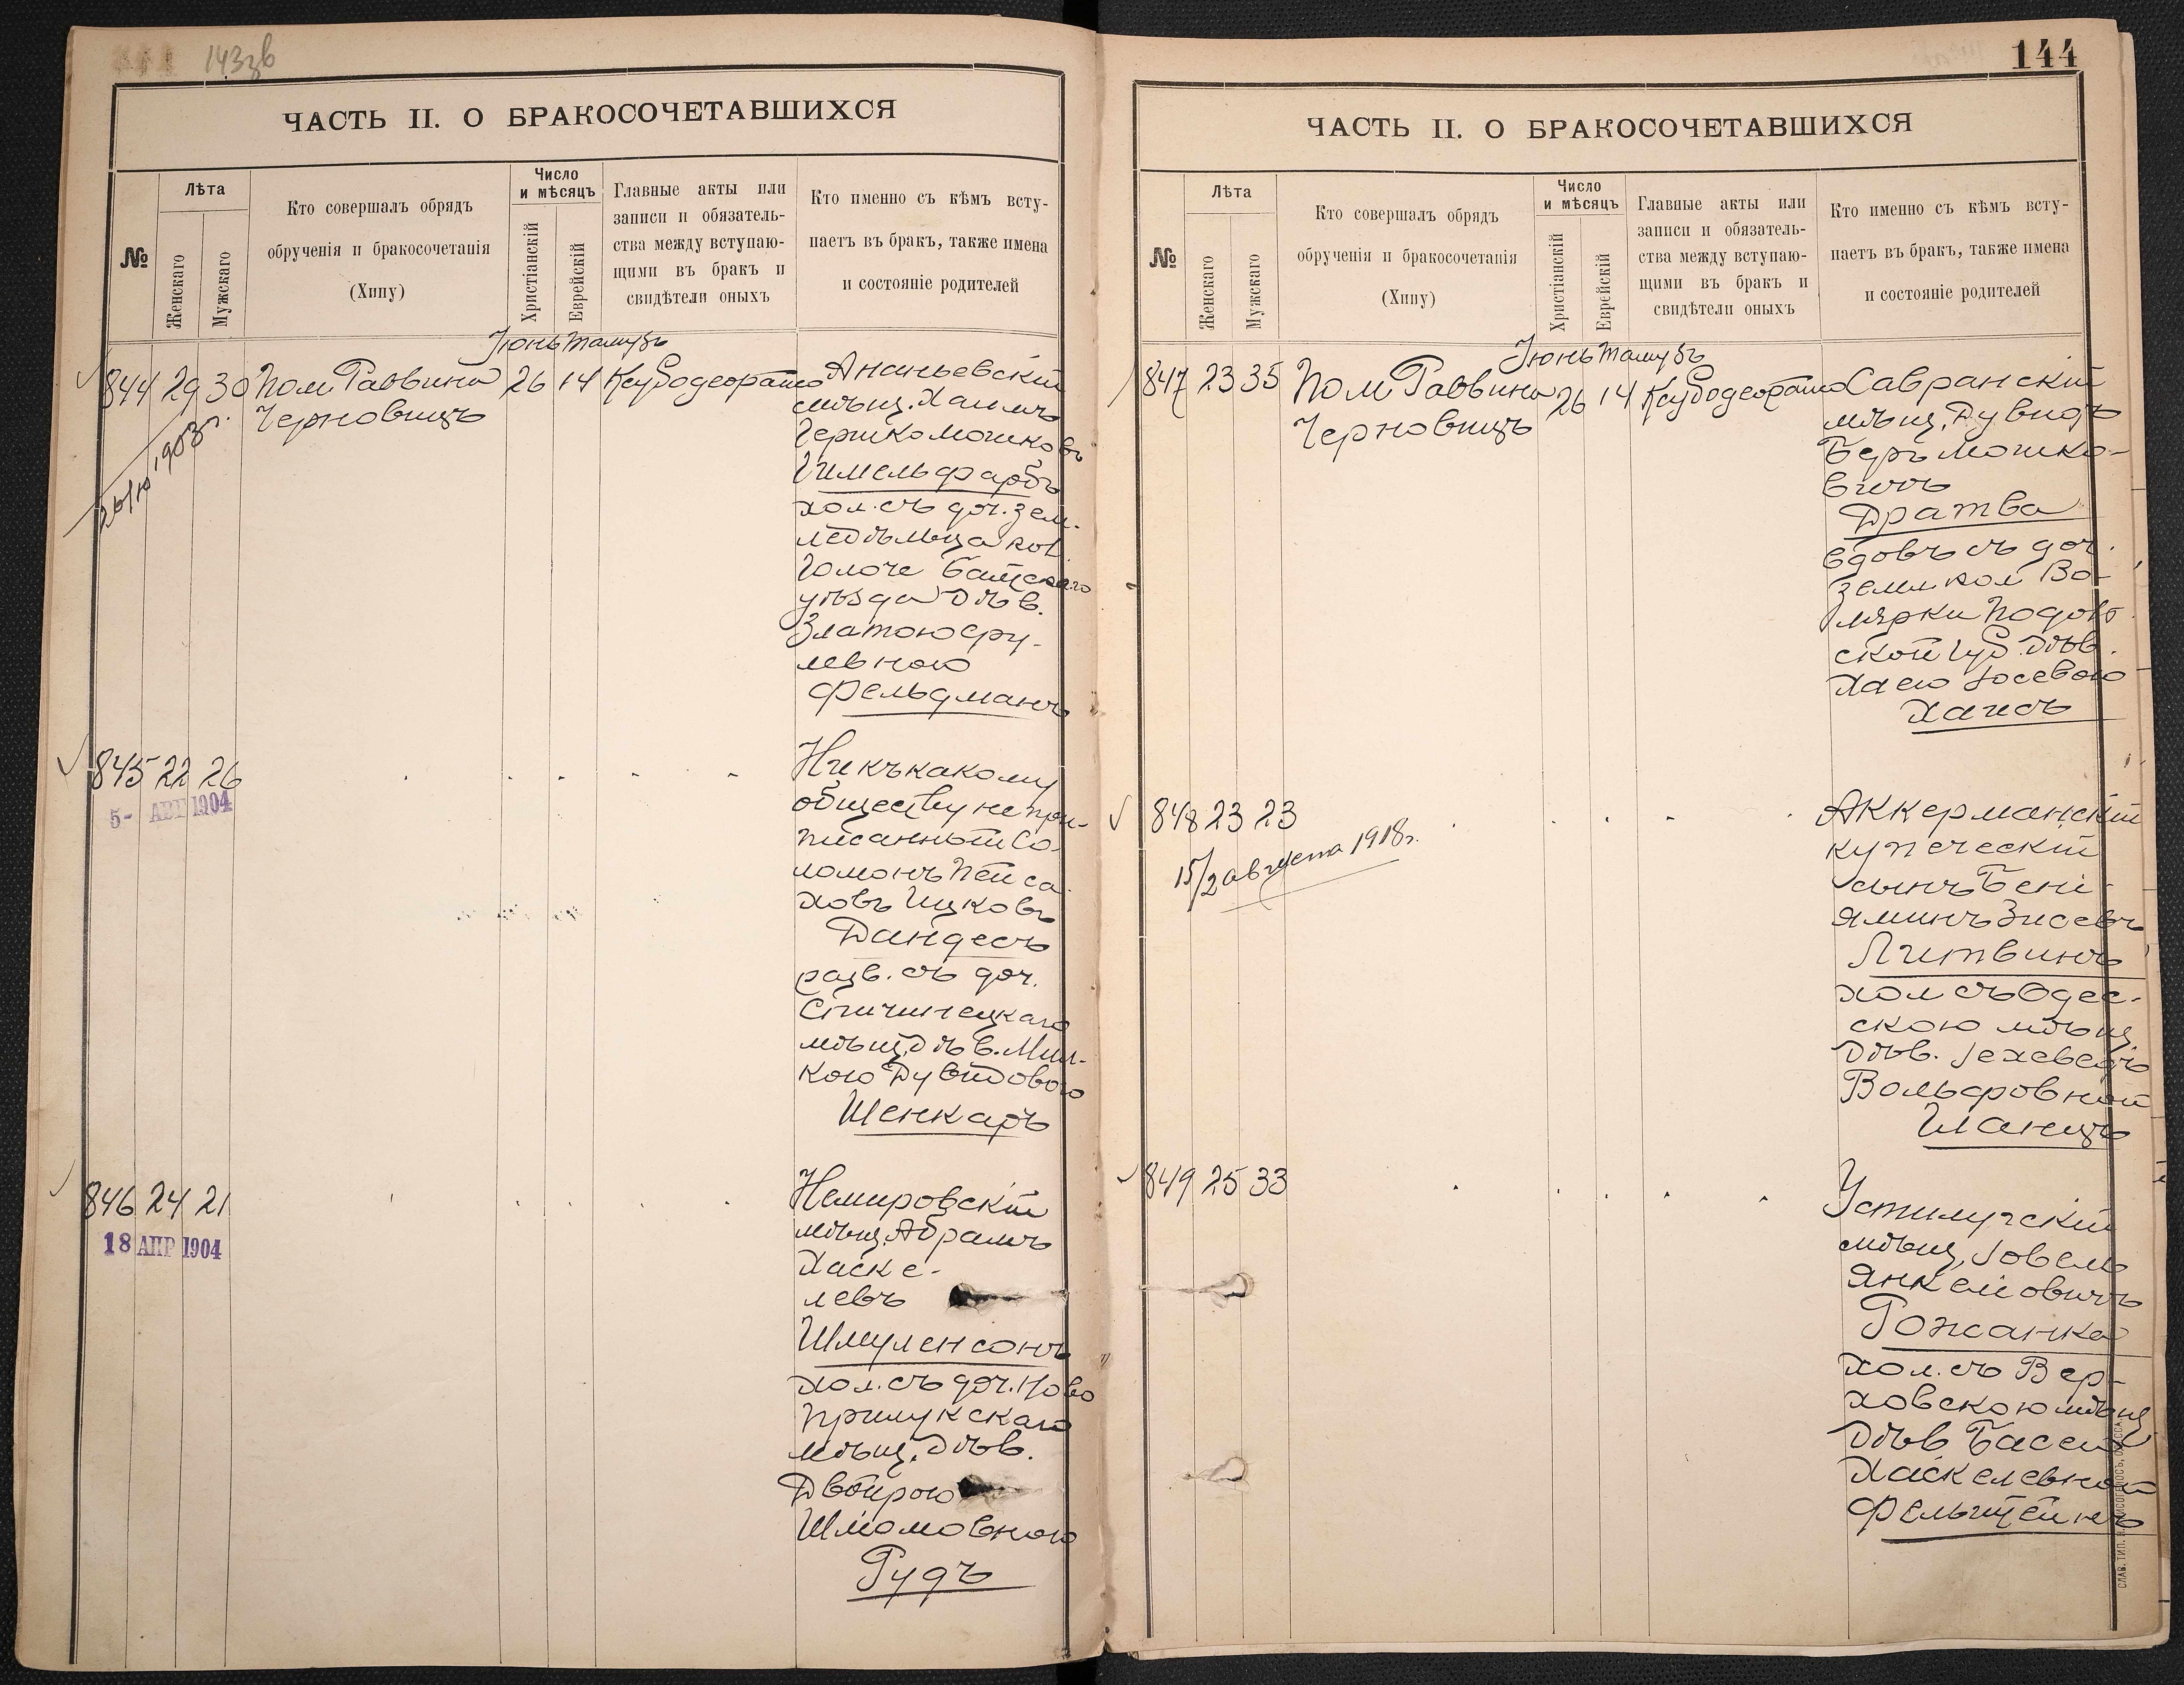 143зв
ЧАСТЬ II. О БРАКОСОЧЕТАВШИХСЯ
№
Лѣта
Женскаго
Мужскаго
Кто совершалъ обрядъ
обрученія и бракосочетанія
(Хипу)
Число
и мѣсяцъ
Христіанскій
Еврейскій
Главные акты или
записи и обязатель-
ства между вступаю-
щими въ бракъ и
свидѣтели оныхъ
Кто именно съ кѣмъ всту-
паетъ въ бракъ, также имена
и состояніе родителей
Іюнь Тамузъ
844 29 30 Пом. Раввина 26 14
Черновицъ
Ананьевскій
мѣщ. Хаимъ
Гершко Мошковъ
Гимельфарбъ
хол. съ доч. зем-
ледѣльца кол.
Балтскаго
уѣзда дѣв.
Златою Сру-
левною
Фельдманъ
845 22 26
5- АВГ 1904
Ни къ какому
обществу не при-
писанный Со-
ломонъ Пейса-
ховъ Ицковъ
Дандесъ
разв. съ доч.
Спичинецкаго
мѣщ. дѣв. Мил-
кою Дувидовою
Шенкаръ
846 24 21
18 АПР 1904
Немировскій
мѣщ. Абрамъ
Хаске-
левъ
Шмуленсонъ
хол. съ доч. Ново
Прилукскаго
мѣщ. дѣв.
Двойрою
Шломовною
Рудъ
144
ЧАСТЬ II. О БРАКОСОЧЕТАВШИХСЯ
№
Лѣта
Женскаго
Мужскаго
Кто совершалъ обрядъ
обрученія и бракосочетанія
(Хипу)
Число
и мѣсяцъ
Христіанскій
Еврейскій
Главные акты или
записи и обязатель-
ства между вступаю-
щими въ бракъ и
свидѣтели оныхъ
Кто именно съ кѣмъ всту-
паетъ въ бракъ, также имена
и состояніе родителей
Іюнь Тамузъ
847 23 35 Пом. Раввина 26 14
Черновицъ
Савранскій
мѣщ. Дувидъ
Беръ Мошко-
вичъ
Дратва
вдовъ съ доч.
земл. кол. Во-
лярки Подоль-
ской губ. дѣв.
Хаею Іосевою
Хаисъ
848 23 23
15/2 августа 1918г.
Аккерманскій
купеческій
сынъ Бені-
яминъ Зисевъ
Литвинъ
хол. съ Одес-
скою мѣщ.
дѣв. Іехеведъ
Вольфовной
Шанцъ
849 25 33
Устилугскій
мѣщ. Іовель
Янкелiовичъ
Рожанка
хол. съ Вер-
ховскою мѣщ.
дѣв. Басею
Хаскелевной
Фельштейнъ